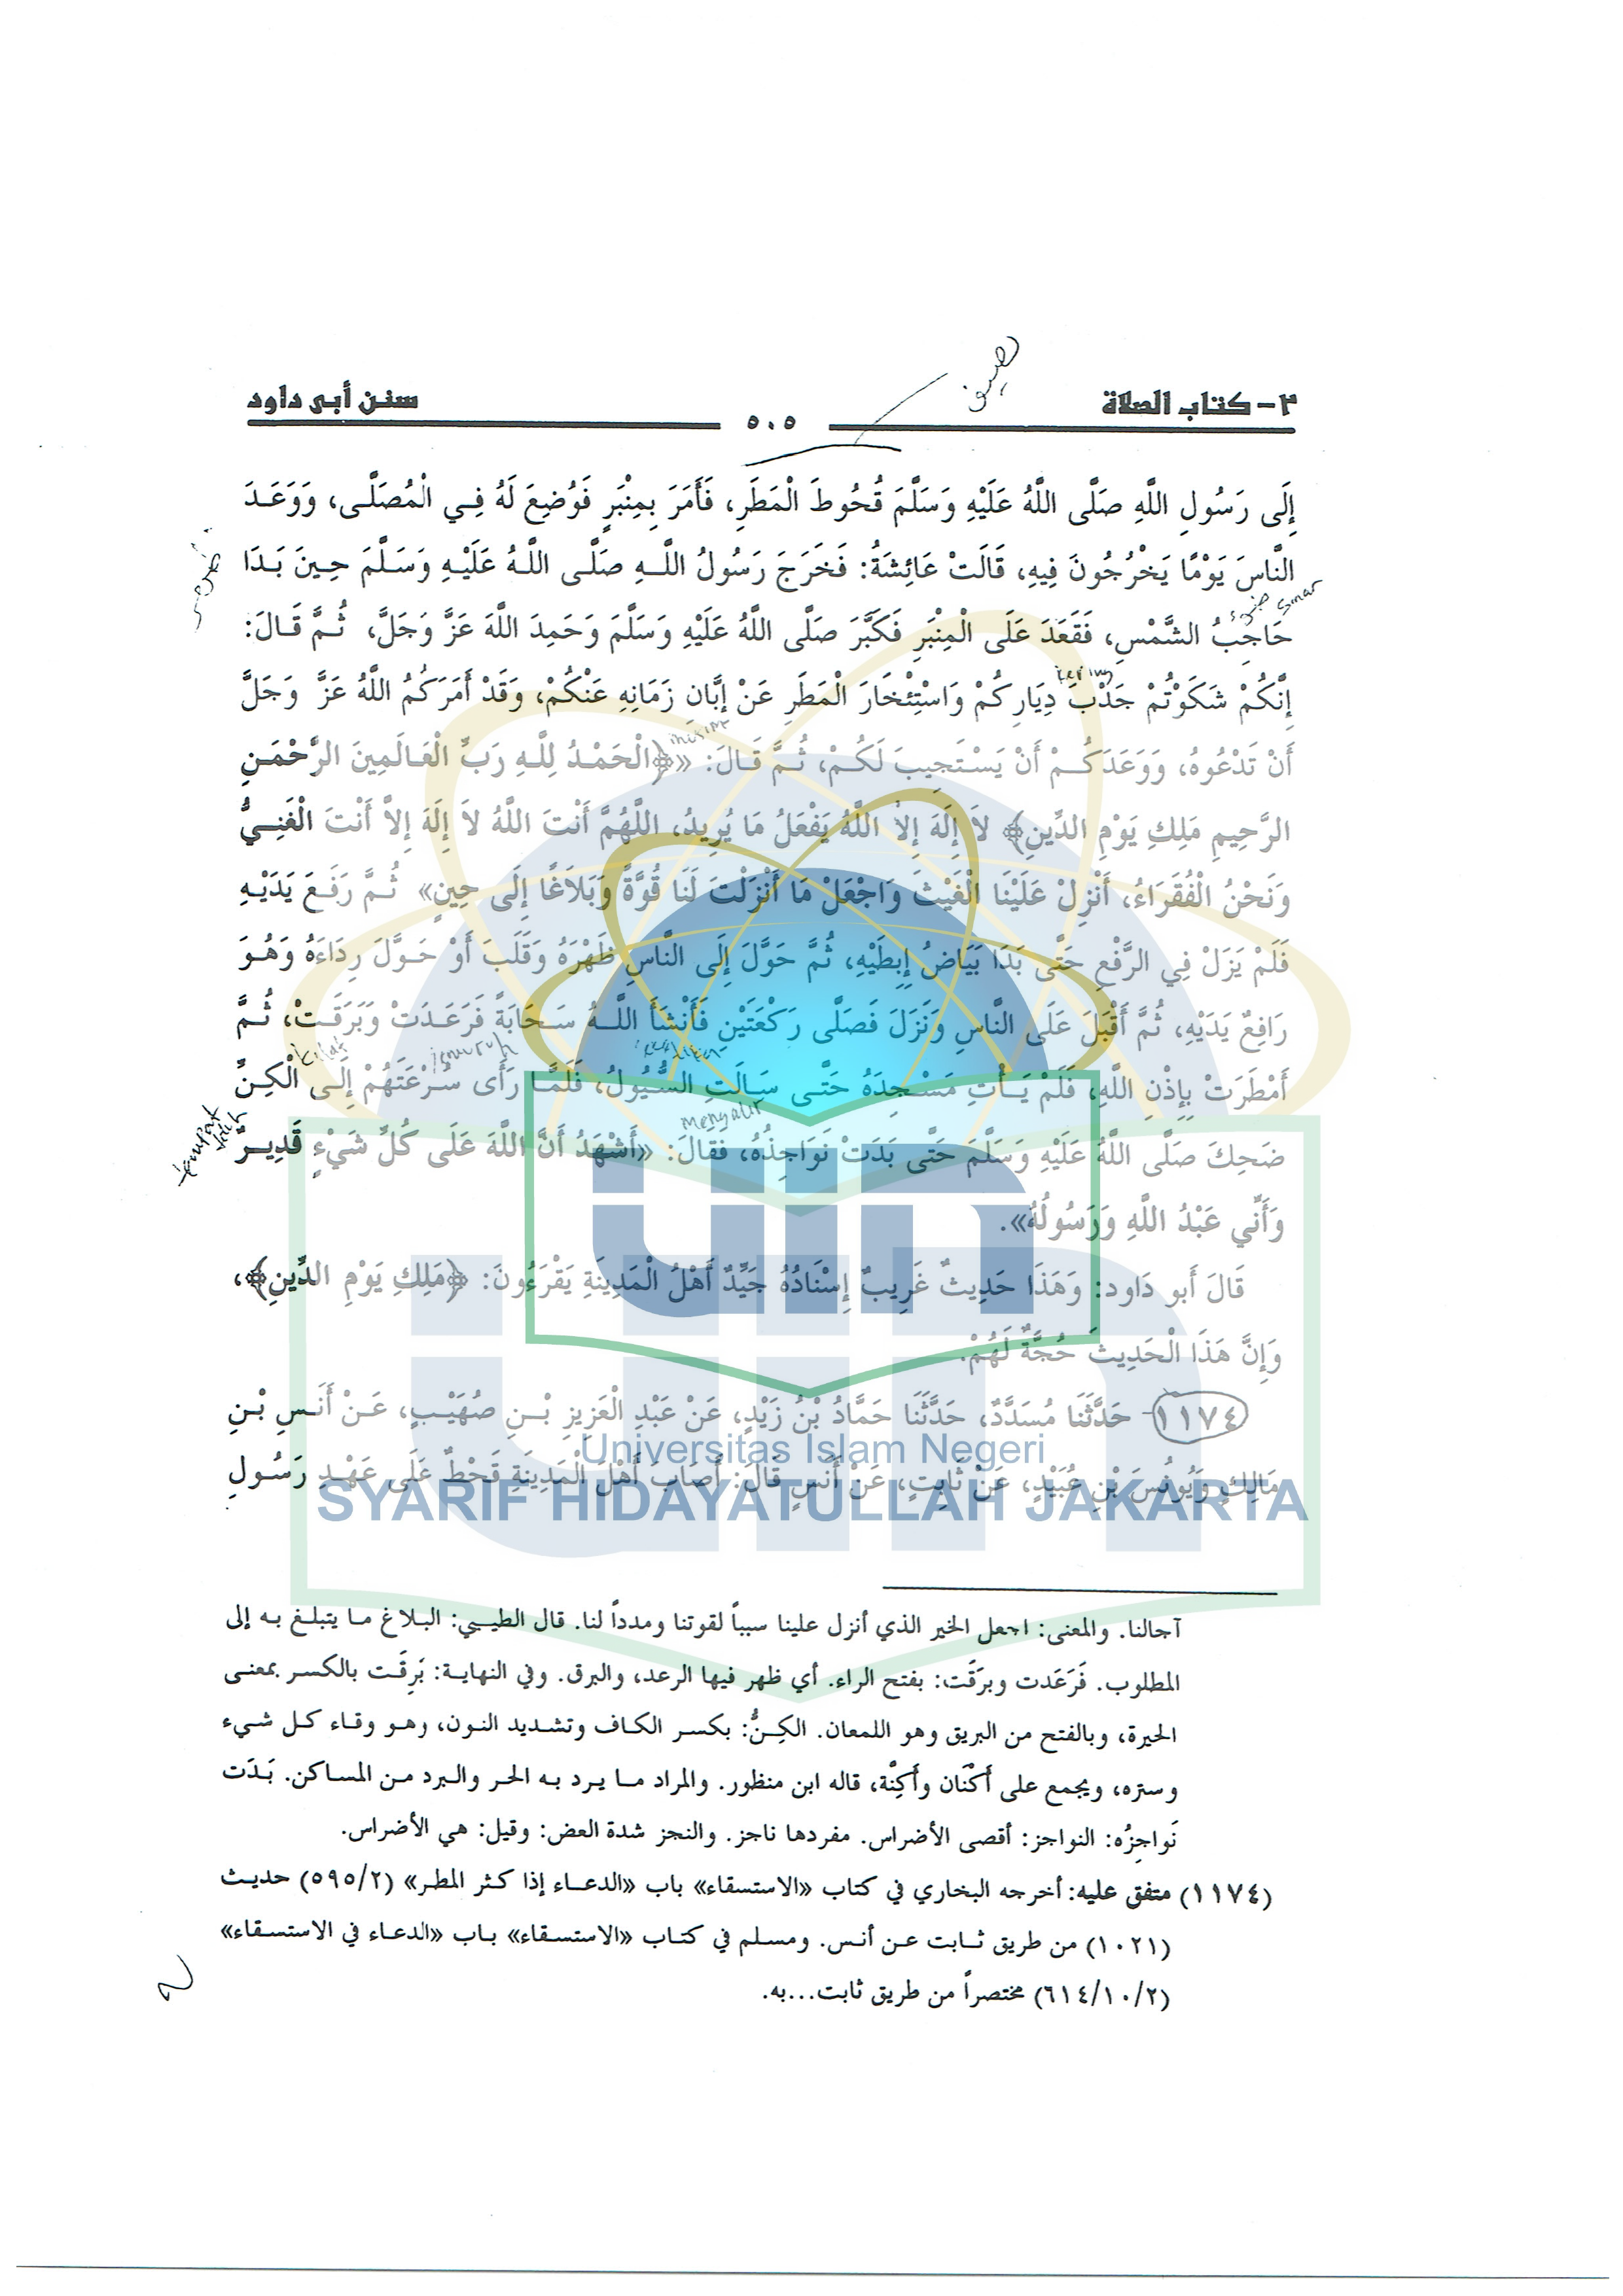 ٣- كتاب الصلاة
٥٠٥
سنن أبى داود
إِلَى رَسُولِ اللَّهِ صَلَّى اللَّهُ عَلَيْهِ وَسَلَّمَ قُحُوطَ الْمَطَرِ، فَأَمَرَ بِمِنْبَرٍ فَوُضِعَ لَهُ فِي الْمُصَلَّى، وَوَعَدَ
النَّاسَ يَوْمًا يَخْرُجُونَ فِيهِ، قَالَتْ عَائِشَةُ: فَخَرَجَ رَسُولُ اللَّهِ صَلَّى اللَّهُ عَلَيْهِ وَسَلَّمَ حِينَ بَدَا
sinar
حَاجِبُ الشَّمْسِ، فَقَعَدَ عَلَى الْمِنْبَرِ فَكَبَّرَ صَلَّى اللَّهُ عَلَيْهِ وَسَلَّمَ وَحَمِدَ اللَّهَ عَزَّ وَجَلَّ، ثُمَّ قَالَ:
إِنَّكُمْ شَكَوْتُمْ جَدْبَ دِيَارِكُمْ وَاسْتِئْخَارَ الْمَطَرِ عَنْ إِبَّانِ زَمَانِهِ عَنْكُمْ، وَقَدْ أَمَرَكُمُ اللَّهُ عَزَّ وَجَلَّ
أَنْ تَدْعُوهُ، وَوَعَدَكُمْ أَنْ يَسْتَجِيبَ لَكُمْ، ثُمَّ قَالَ: «﴿الْحَمْدُ لِلَّهِ رَبِّ الْعَالَمِينَ الرَّحْمَنِ
الرَّحِيمِ مَلِكِ يَوْمِ الدِّينِ﴾ لاَ إِلَهَ إِلاَّ اللَّهُ يَفْعَلُ مَا يُرِيدُ، اللَّهُمَّ أَنْتَ اللَّهُ لاَ إِلَهَ إِلاَّ أَنْتَ الْغَنِيُّ
وَنَحْنُ الْفُقَرَاءُ، أَنْزِلْ عَلَيْنَا الْغَيْثَ وَاجْعَلْ مَا أَنْزَلْتَ لَنَا قُوَّةً وَبَلاَغًا إِلَى حِينٍ» ثُمَّ رَفَعَ يَدَيْهِ
فَلَمْ يَزَلْ فِي الرَّفْعِ حَتَّى بَدَا بَيَاضُ إِبِطَيْهِ، ثُمَّ حَوَّلَ إِلَى النَّاسِ ظَهْرَهُ وَقَلَبَ أَوْ حَوَّلَ رِدَاءَهُ وَهُوَ
رَافِعٌ يَدَيْهِ، ثُمَّ أَقْبَلَ عَلَى النَّاسِ وَنَزَلَ فَصَلَّى رَكْعَتَيْنِ فَأَنْشَأَ اللَّهُ سَحَابَةً فَرَعَدَتْ وَبَرَقَتْ، ثُمَّ
أَمْطَرَتْ بِإِذْنِ اللَّهِ، فَلَمْ يَأْتِ مَسْجِدَهُ حَتَّى سَالَتِ السُّيُولُ، فَلَمَّا رَأَى سُرْعَتَهُمْ إِلَى الْكِنِّ
mengalir
ضَحِكَ صَلَّى اللَّهُ عَلَيْهِ وَسَلَّمَ حَتَّى بَدَتْ نَوَاجِذُهُ، فَقَالَ: «أَشْهَدُ أَنَّ اللَّهَ عَلَى كُلِّ شَيْءٍ قَدِيرٌ
وَأَنِّي عَبْدُ اللَّهِ وَرَسُولُهُ».
قَالَ أَبو دَاود: وَهَذَا حَدِيثٌ غَرِيبٌ إِسْنَادُهُ جَيِّدٌ أَهْلُ الْمَدِينَةِ يَقْرَءُونَ: ﴿مَلِكِ يَوْمِ الدِّينِ﴾،
وَإِنَّ هَذَا الْحَدِيثَ حُجَّةٌ لَهُمْ.
١١٧٤- حَدَّثَنَا مُسَدَّدٌ، حَدَّثَنَا حَمَّادُ بْنُ زَيْدٍ، عَنْ عَبْدِ الْعَزِيزِ بْنِ صُهَيْبٍ، عَنْ أَنَسِ بْنِ
مَالِكٍ وَيُونُسَ بْنِ عُبَيْدٍ، عَنْ ثَابِتٍ، عَنْ أَنَسٍ قَالَ: أَصَابَ أَهْلَ الْمَدِينَةِ قَحْطٌ عَلَى عَهْدِ رَسُولِ
uin
Universitas Islam Negeri
SYARIF HIDAYATULLAH JAKARTA
آجالنا. والمعنى: اجعل الخير الذي أنزل علينا سبباً لقوتنا ومدداً لنا. قال الطيبي: البلاغ ما يتبلغ به إلى
المطلوب. فَرَعَدت وبرَقَت: بفتح الراء. أي ظهر فيها الرعد، والبرق. وفي النهاية: بَرِقَت بالكسر بمعنى
الحيرة، وبالفتح من البريق وهو اللمعان. الكِنُّ: بكسر الكاف وتشديد النون، وهو وقاء كل شيء
وستره، ويجمع على أَكْنَان وأَكِنَّة، قاله ابن منظور. والمراد ما يرد به الحر والبرد من المساكن. بَدَت
نَواجِزُه: النواجز: أقصى الأضراس. مفردها ناجز. والنجز شدة العض: وقيل: هي الأضراس.
(١١٧٤) متفق عليه: أخرجه البخاري في كتاب «الاستسقاء» باب «الدعاء إذا كثر المطر» (٥٩٥/٢) حديث
(١٠٢١) من طريق ثابت عن أنس. ومسلم في كتاب «الاستسقاء» باب «الدعاء في الاستسقاء»
(٦١٤/١٠/٢) مختصراً من طريق ثابت...به.